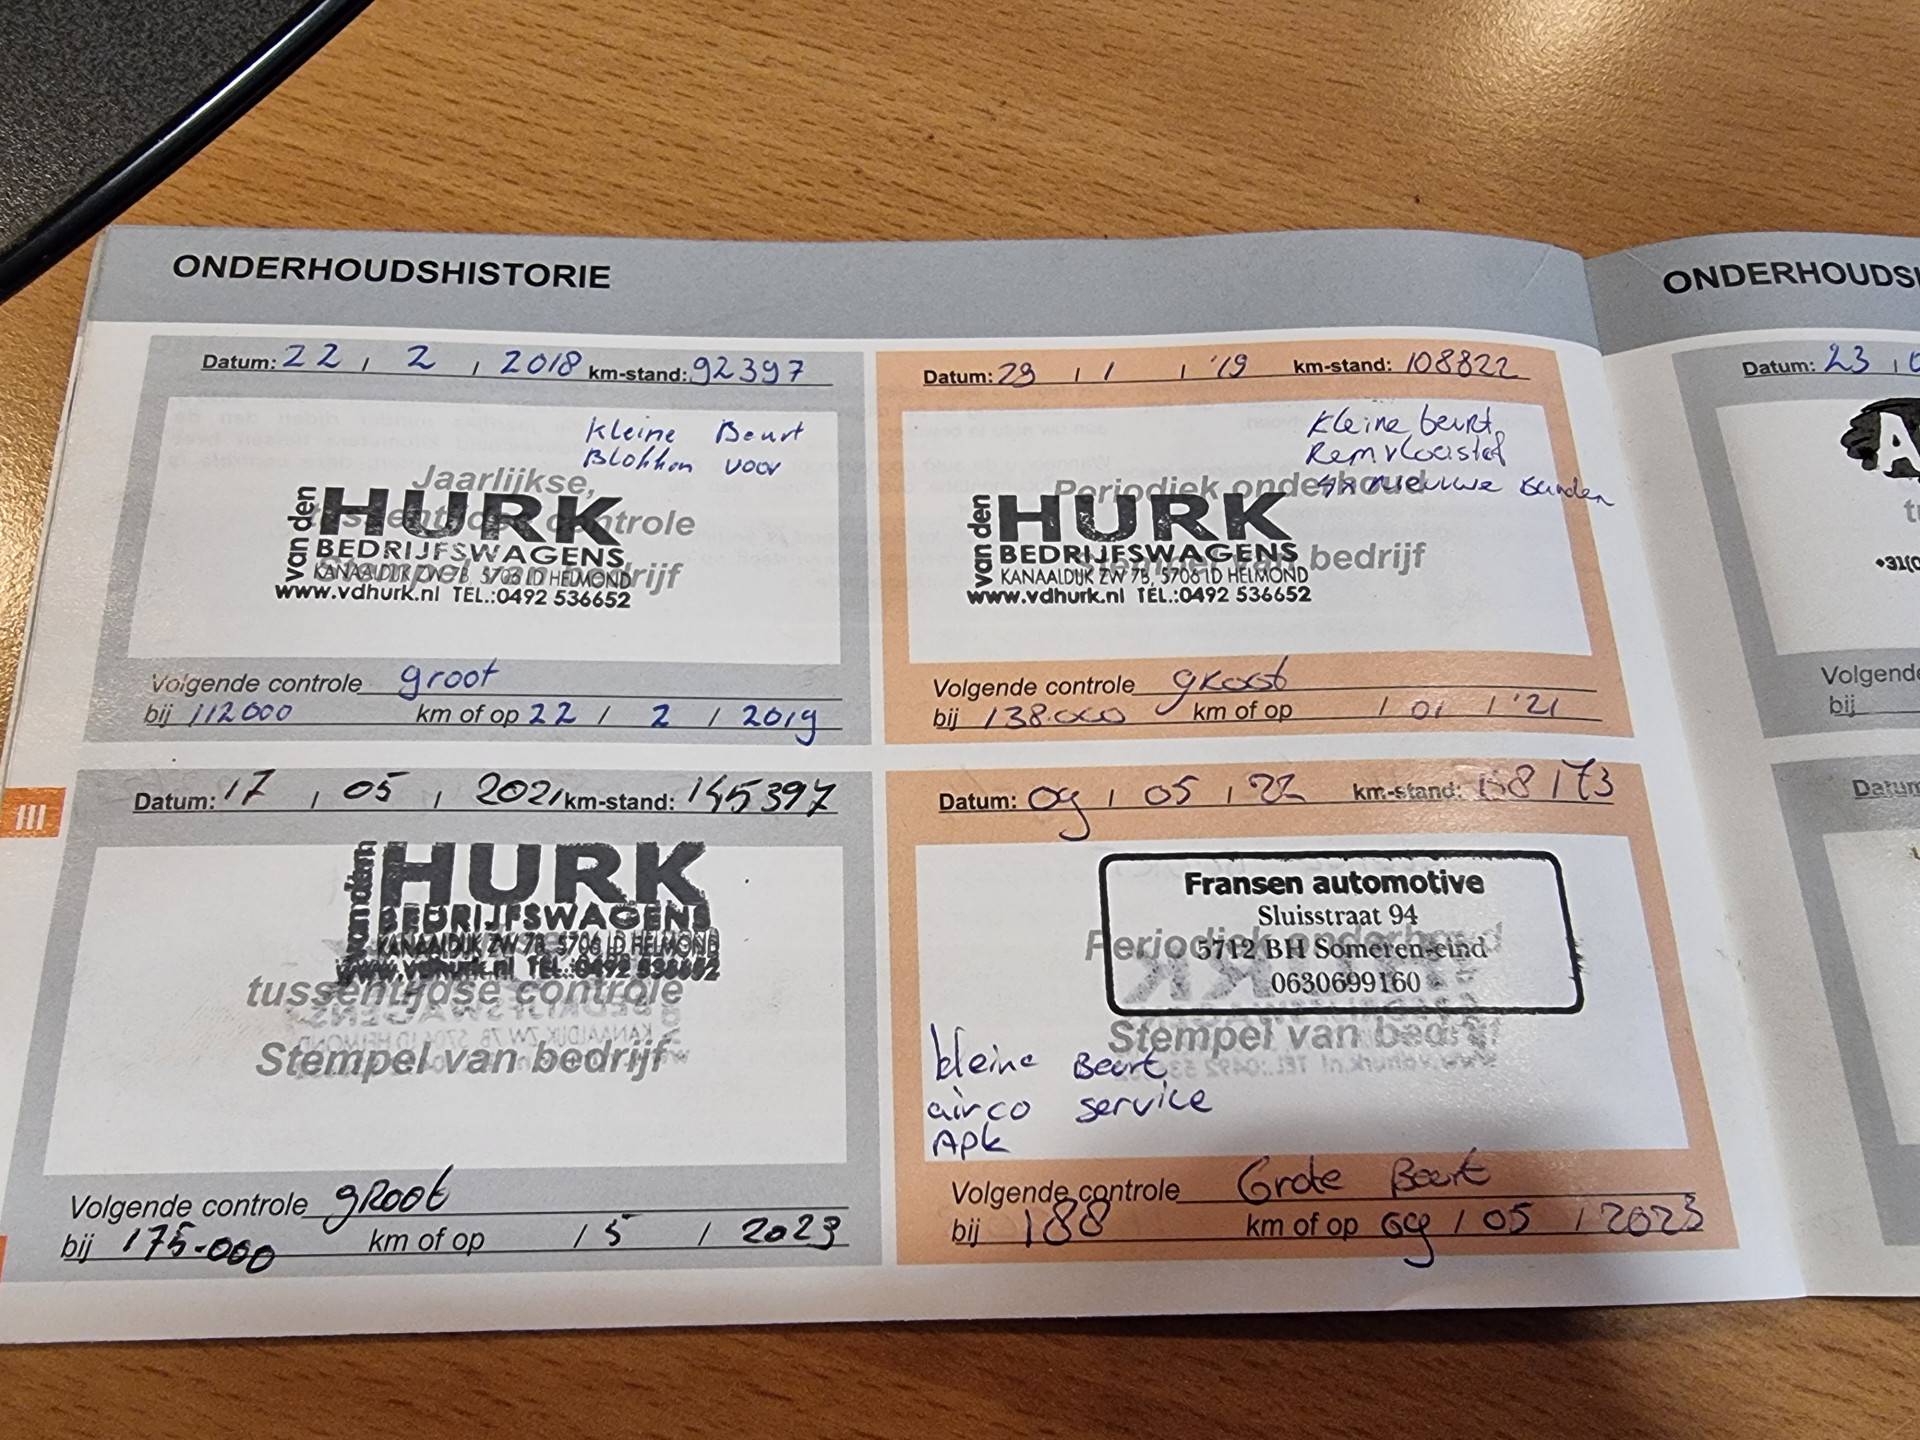 ONDERHOUDSHISTORIE
Datum: 22 / 2 / 2018 km-stand: 92397
Kleine Beurt
Blokken voor
Jaarlijkse,
tussentijdse controle
Stempel van bedrijf
van den HURK
BEDRIJFSWAGENS
KANAALDIJK ZW 7B, 5706 LD HELMOND
www.vdhurk.nl TEL.:0492 536652
Volgende controle groot
bij 112000 km of op 22 / 2 / 2019
Datum: 29 / 1 / '19 km-stand: 108822
Kleine beurt,
Remvloeistof
4x nieuwe Banden
Periodiek onderhoud
Stempel van bedrijf
van den HURK
BEDRIJFSWAGENS
KANAALDIJK ZW 7B, 5706 LD HELMOND
www.vdhurk.nl TEL.:0492 536652
Volgende controle groot
bij 138.000 km of op / 01 / '21
Datum: 17 / 05 / 2021 km-stand: 145397
van den HURK
BEDRIJFSWAGENS
KANAALDIJK ZW 7B, 5706 LD HELMOND
www.vdhurk.nl TEL.:0492 536652
tussentijdse controle
Stempel van bedrijf
Volgende controle gRoot
bij 175.000 km of op / 5 / 2023
Datum: 09 / 05 / 22 km-stand: 158173
Fransen automotive
Sluisstraat 94
5712 BH Someren-eind
0630699160
Periodiek onderhoud
Stempel van bedrijf
kleine Beurt
airco service
Apk
Volgende controle Grote Beurt
bij 188 km of op 09 / 05 / 2023
III
ONDERHOUDSH
Datum: 23 / 0
A
+31(0
Volgende
bij
Datum